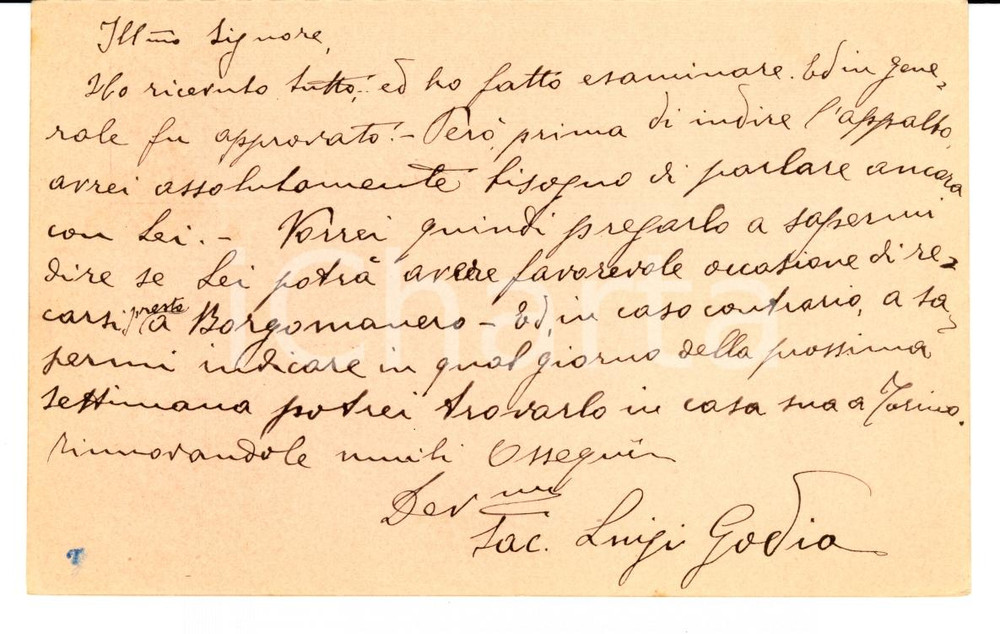 Ill.mo Signore,
Ho ricevuto tutto, ed ho fatto esaminare. Ed in gene-
rale fu approvato. - Però, prima di indire l'appalto,
avrei assolutamente bisogno di parlare ancora
con Lei. - Vorrei quindi pregarlo a sapermi
dire se Lei potrà avere favorevole occasione di re-
carsi presto a Borgomanero - Ed, in caso contrario, a sa-
permi indicare in qual giorno della prossima
settimana potrei trovarlo in casa sua a Torino.
Rinnovandole umili Ossequii
Dev.mo
Sac. Luigi Godio
iCharta